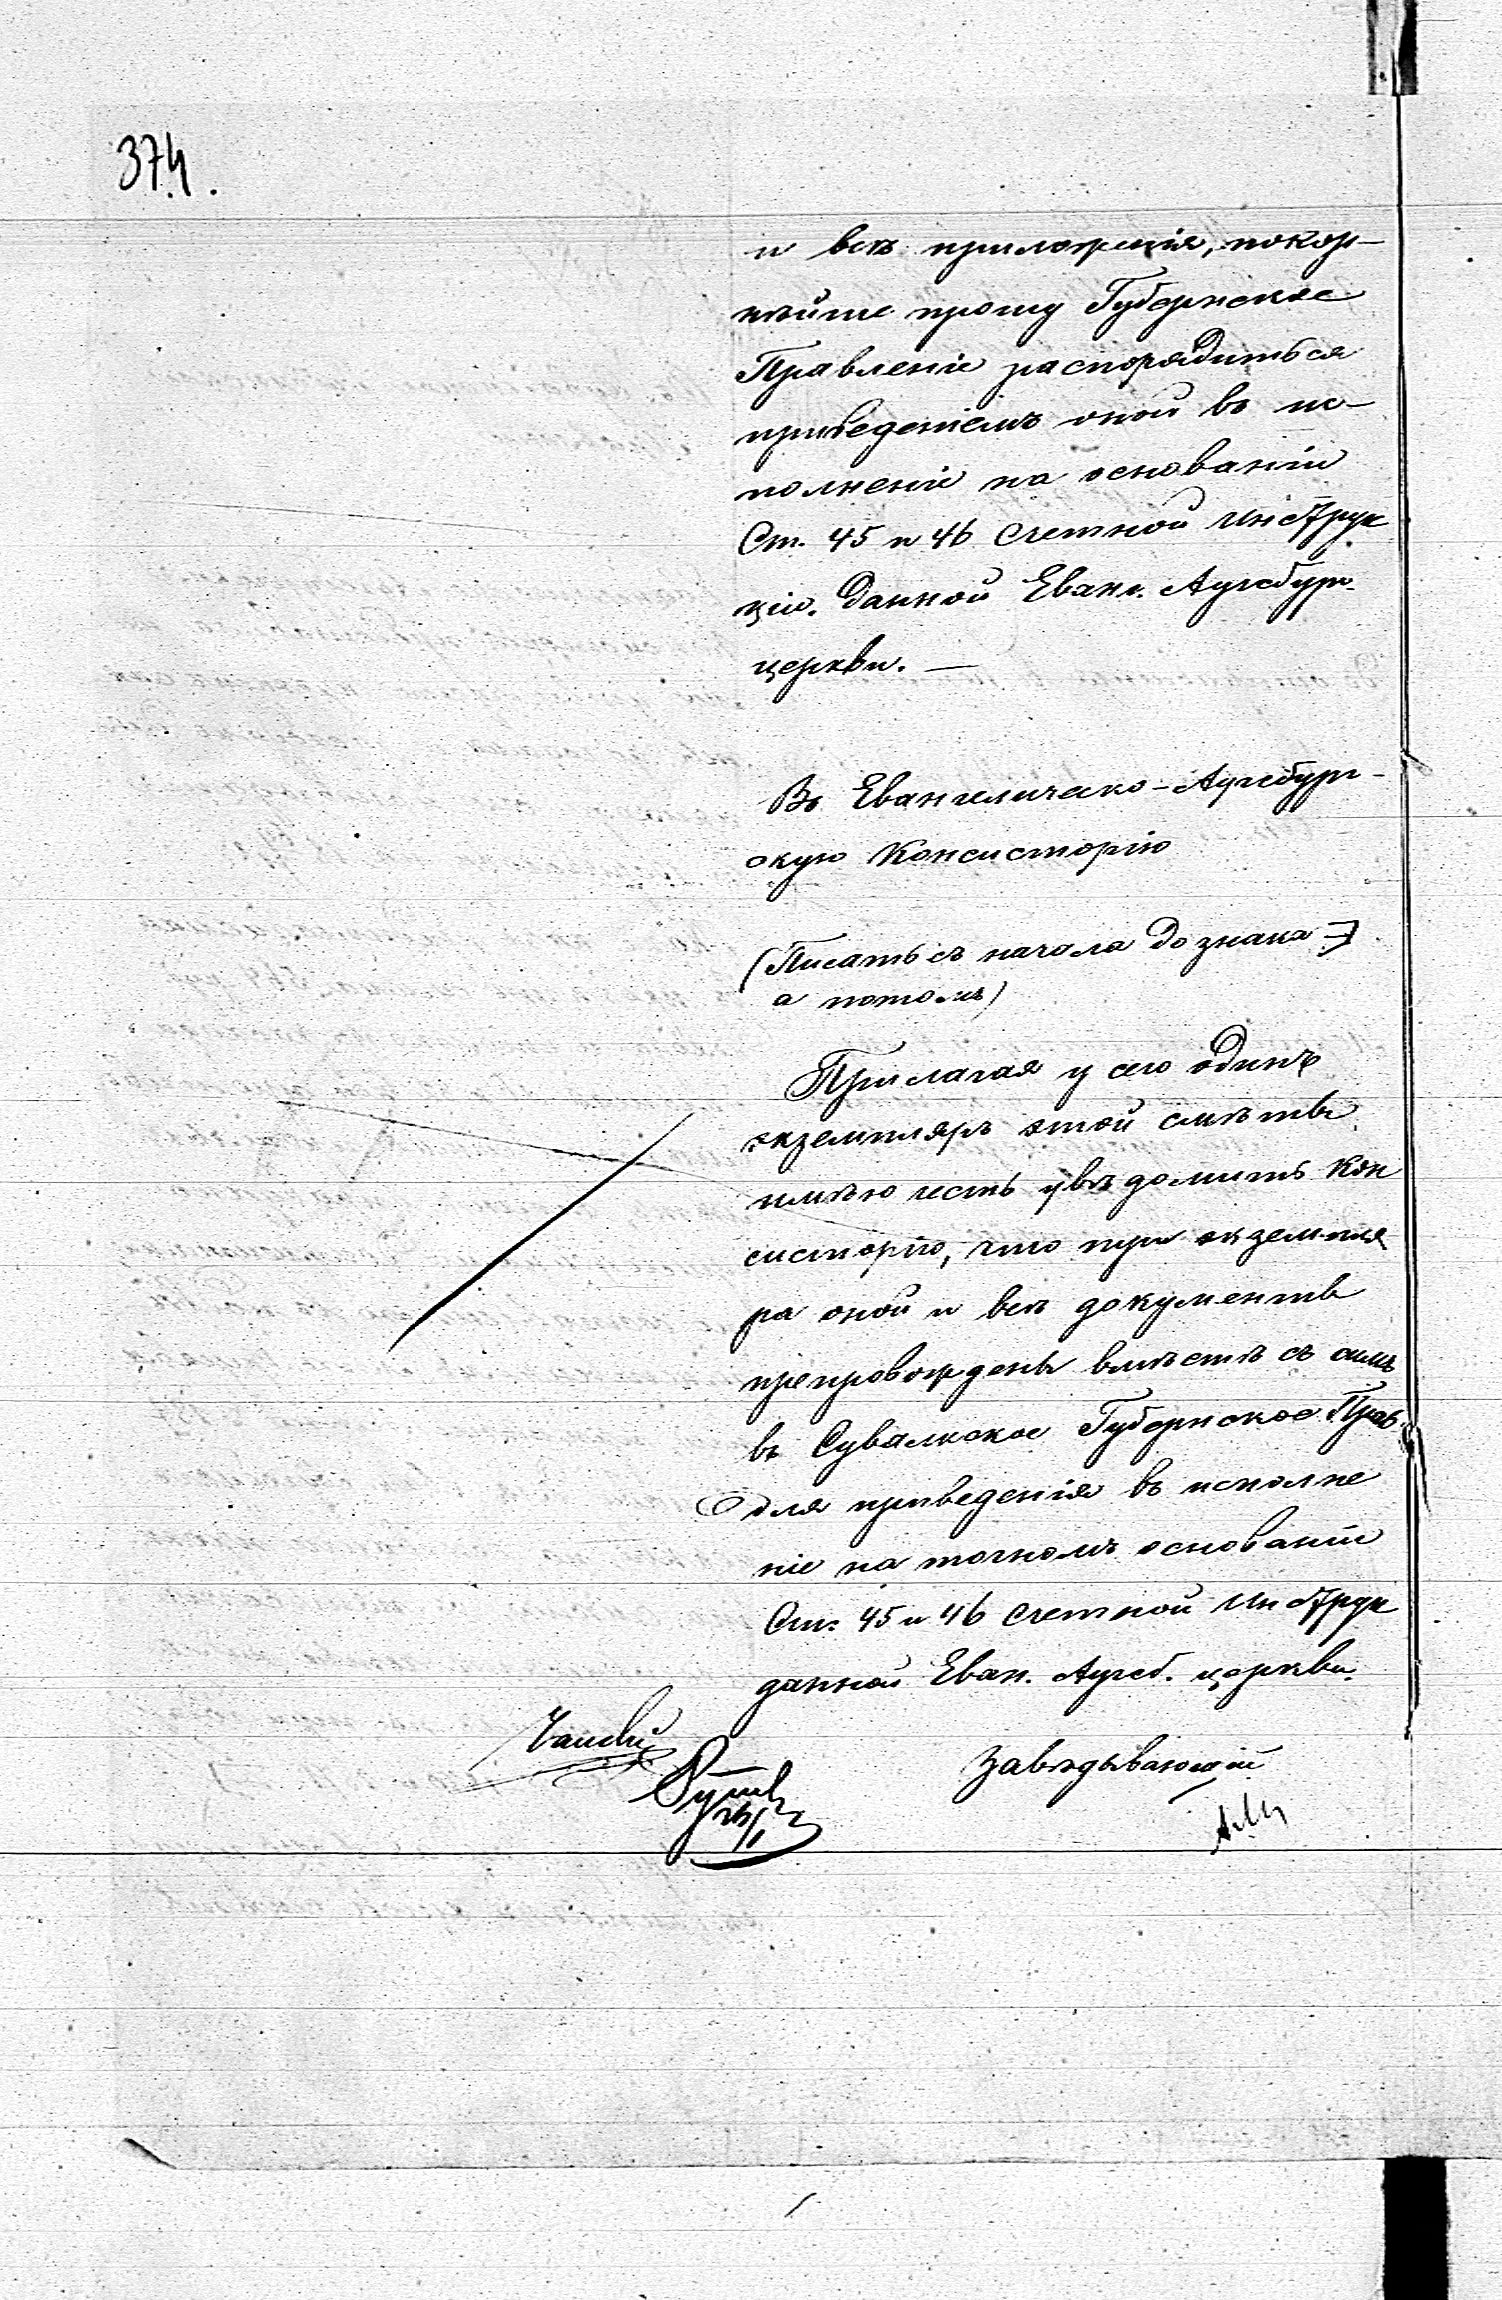 374.
и всѣ приложенія, покор-
нѣйше прошу Губернское
Правленіе распорядиться
приведеніемъ оной въ ис-
полненіе на основаніи
Ст. 45 и 46 счетной инструк
ціи, данной Еванг. Аугсбург.
церкви. —
Въ Евангелическо-Аугсбург-
скую Консисторію
(Писать съ начала до знака
а потомъ)
Прилагая у сего одинъ
экземпляръ этой смѣты
имѣю честь увѣдомить Кон
систорію, что три экземпля
ра оной и всѣ документы
препровождены вмѣстѣ съ симъ
въ Сувалкское Губернское Прав.
для приведенія въ исполне
ніе на точномъ основаніи
Ст. 45 и 46 счетной Инструк
данной Еван. Аугсб. церкви.
Завѣдывающій